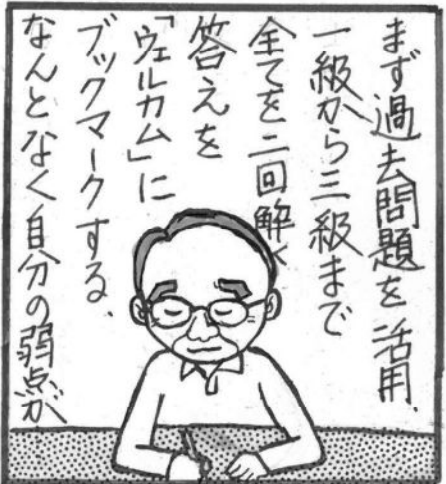 まず過去問題を活用、
一級から三級まで
全てを二回解く
答えを
「ウェルカム」に
ブックマークする、
なんとなく自分の弱点が